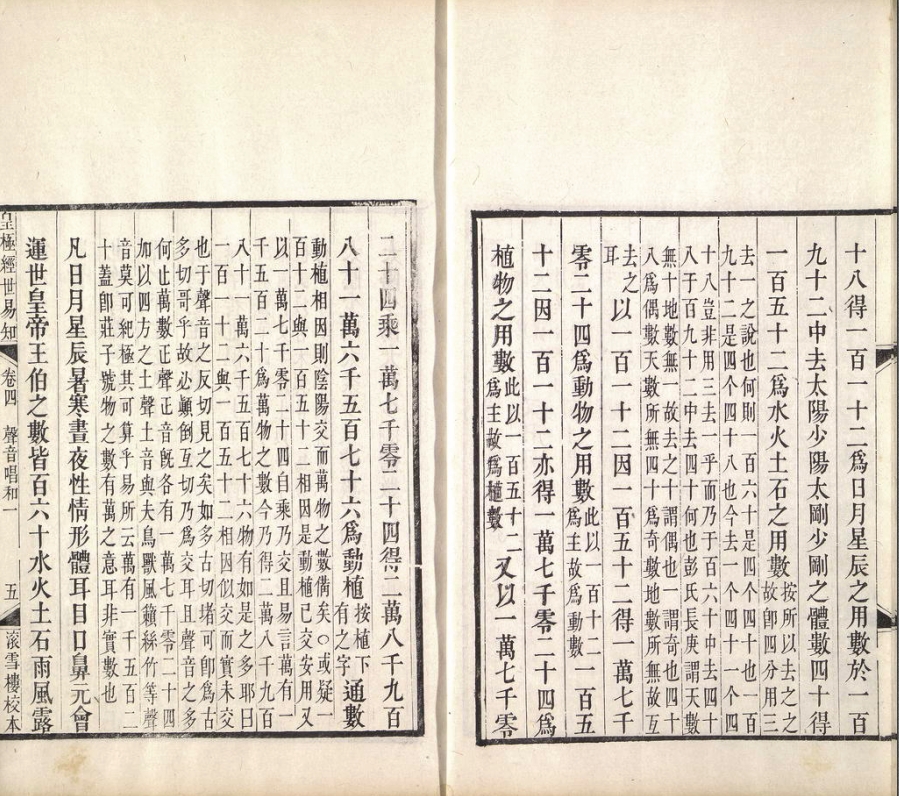 十八得一百一十二爲日月星辰之用數於一百
九十二中去太陽少陽太剛少剛之體數四十得
一百五十二爲水火土石之用數按所以去之之故卽四分用三
去一之說也何則一百六十是四个四十也一百
九十二是四个四十八也今去一个四十一个四
十八豈非用三去一乎而乃于百六十中去四十
八于百九十二中去四十何也彭氏長庚謂天數
無十地數無一故去之十謂偶也一謂奇也四十
八爲偶數天數所無四十爲奇數地數所無故互
去之耳以一百一十二因一百五十二得一萬七千
零二十四爲動物之用數此以一百十二爲主故爲動數一百五
十二因一百一十二亦得一萬七千零二十四爲
植物之用數此以一百五十二爲主故爲植數又以一萬七千零
二十四乘一萬七千零二十四得二萬八千九百
八十一萬六千五百七十六爲動植按植下有之字通數
動植相因則陰陽交而萬物之數備矣○或疑一
百十二與一百五十二相因是動植已交安用又
以一萬七千零二十四自乘乃交且易言萬有一
千五百二十爲萬物之數今乃得二萬八千九百
八十一萬六千五百七十六物有如是之多耶曰
一百一十二與一百五十二相因似交而實未交
也于聲音之反切見之矣如多古切堵可卽爲古
多切哥乎故必顚倒互切乃爲交耳且聲音之多
何止萬數正聲正音旣各有一萬七千零二十四
加以四方之土聲土音與夫鳥獸風籟絲竹等聲
音莫可紀極其可算乎易所云萬有一千五百二
十蓋卽莊子號物之數有萬之意耳非實數也
凡日月星辰暑寒晝夜性情形體耳目口鼻元會
運世皇帝王伯之數皆百六十水火土石雨風露
皇極經世易知 卷四 聲音唱和一 五 滚雪樓校本